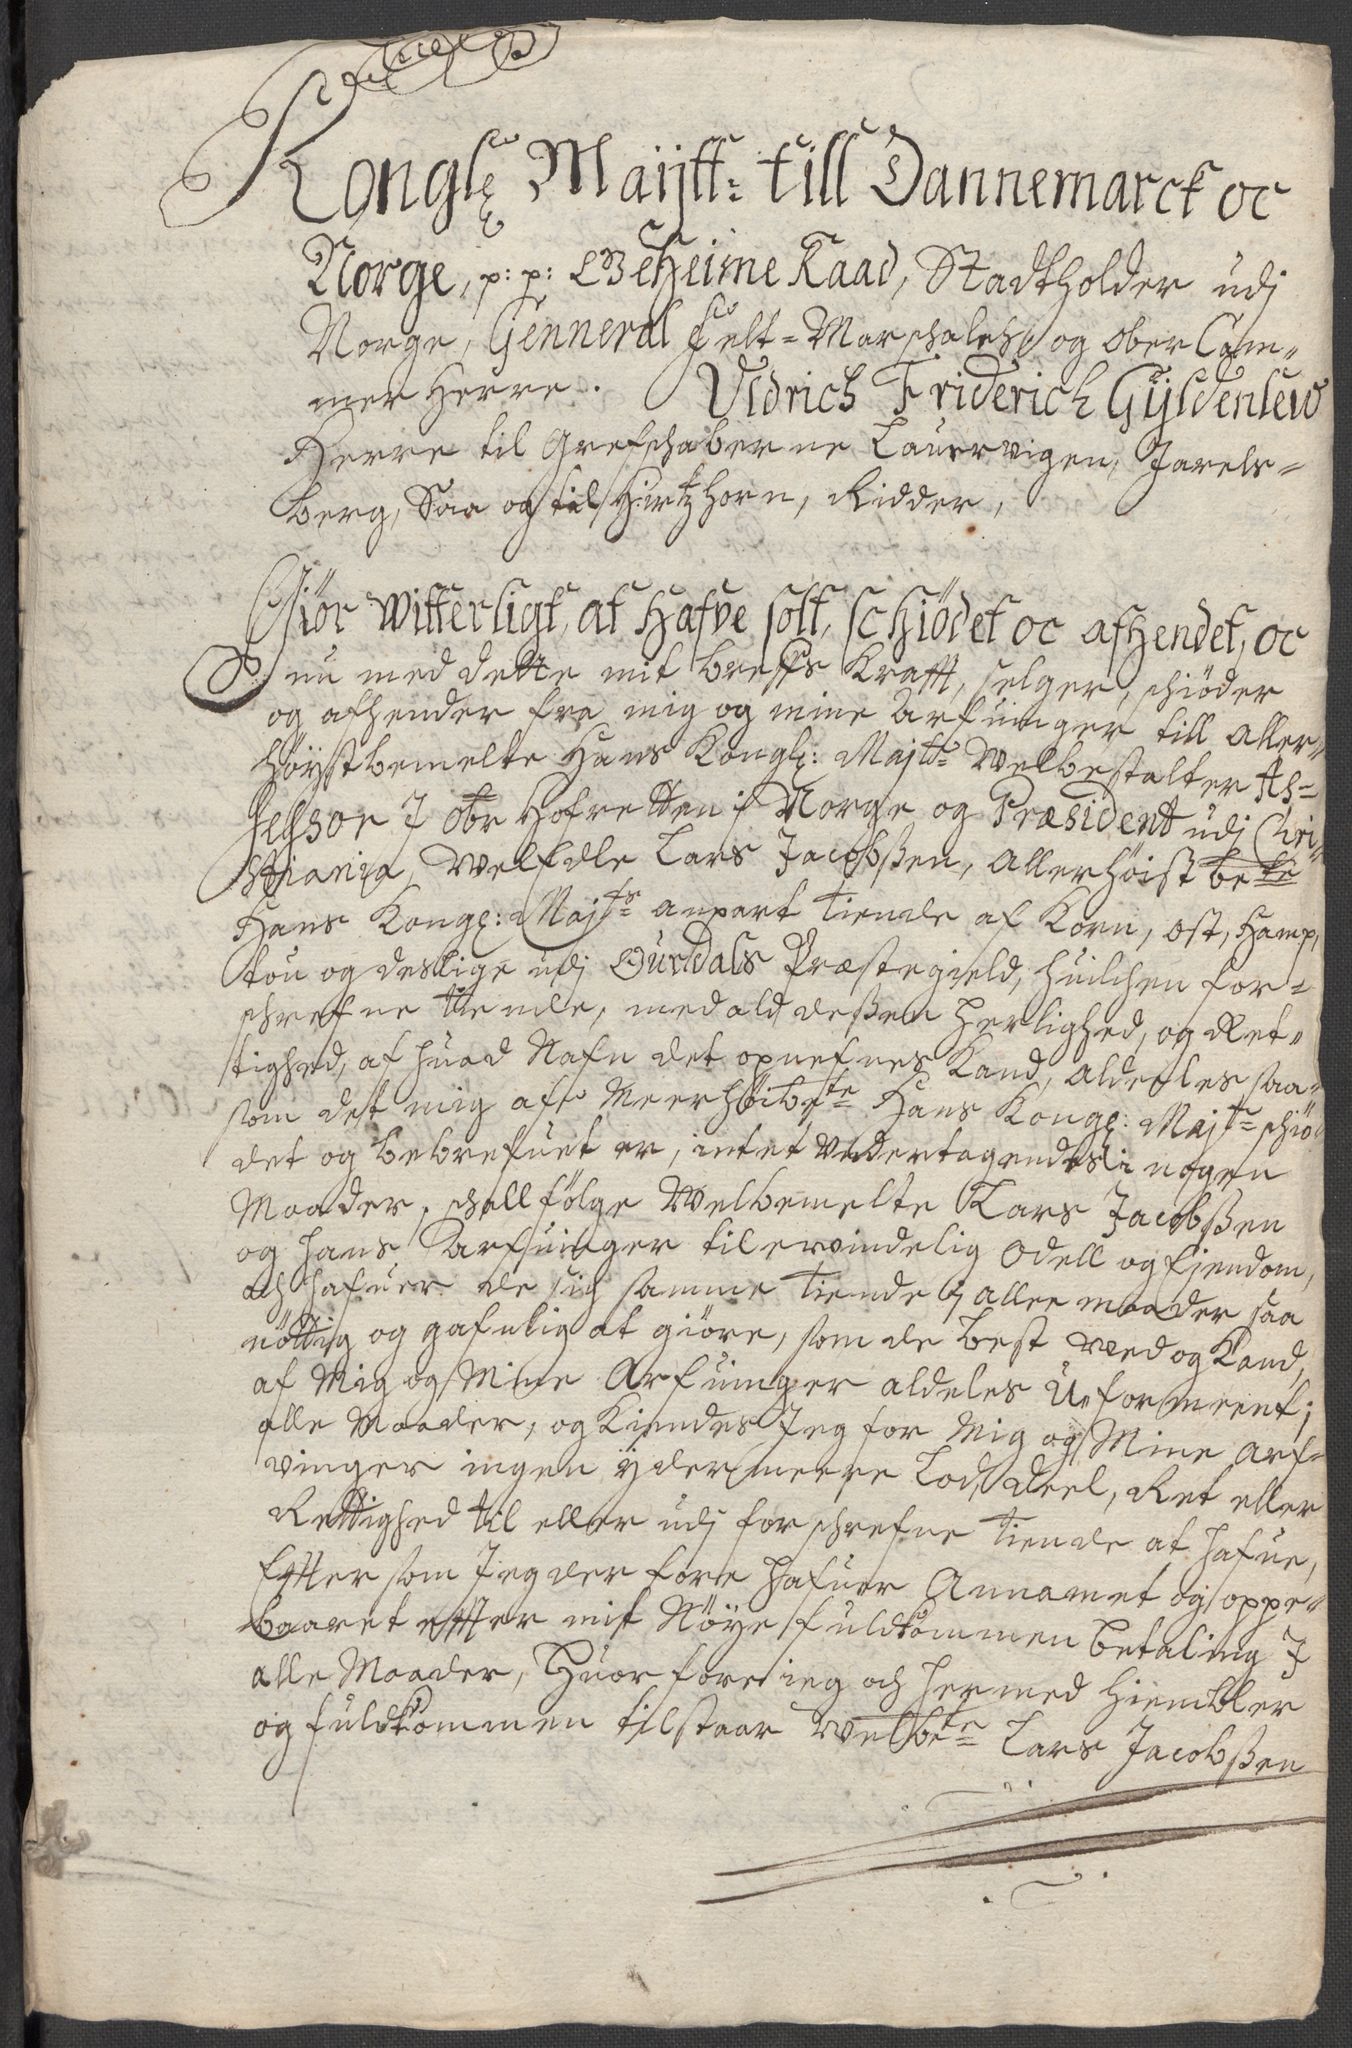 Kongl: Maijtt: till Dannemarck oc
Norge, p: p: Geheime Raad, Stadtholder udj
Norge, Genneral Felt-Marschalch, og Ober Cam-
mer Herre. Uldrich Friderich Gÿldenlew
Herre til Grefschaberne Laurvigen, Jarels-
berg, Saa og til Hirtzhorn, Ridder,
Giör witterligt, at Hafve solt, schiödet oc afhendet, oc
nu med dette mit breffs Krafft, selger, schiöder
og afhender fra mig og mine Arfuinger till aller-
höystbemelte Hans Kongl: Majtts Welbestalter As-
sessor J Obr Hofretten i Norge og Præsident udj Chri-
stiania, Welædle Lars Jacobßen, allerhöist bete
Hans Kongl: Majts anpart Tiende af Korn, ost, Hamp,
tou og deslige udj Ourdals Præstegield, huilchen for-
schrefne tiende, med ald deßen Herlighed, og Ret-
tighed, af huad Nafn det opnefnes Kand, aldeles saa-
som det mig aff Meerhöibete Hans Kongl: Majts schiö-
det og bebrefuet er, intet undertagendes i nogen
Maader, schall fölge Welbemelte Lars Jacobßen
og hans Arfuinger til ervindelig Odell og Ejendom,
och hafuer de sig samme Tiende j alle maader saa
nöttig og gafnlig at giöre, som de best ved og Kand,
af Mig og Mine Arfuinger aldeles Uformeent i
alle Maader, og Kiendes Jeg for Mig og Mine Arf-
vinger ingen ÿdermeere Lod, deel, Ret eller
Rettighed til eller udj forschrefne Tiende at hafue,
Effter som Jeg der fore hafuer Annamet og oppe-
baaret effter mit Nöye fuldkommen betaling J
alle Maader, Huorfore ieg och hermed hiembler
og fuldkommen tilstaar Welbte Lars Jacobßen